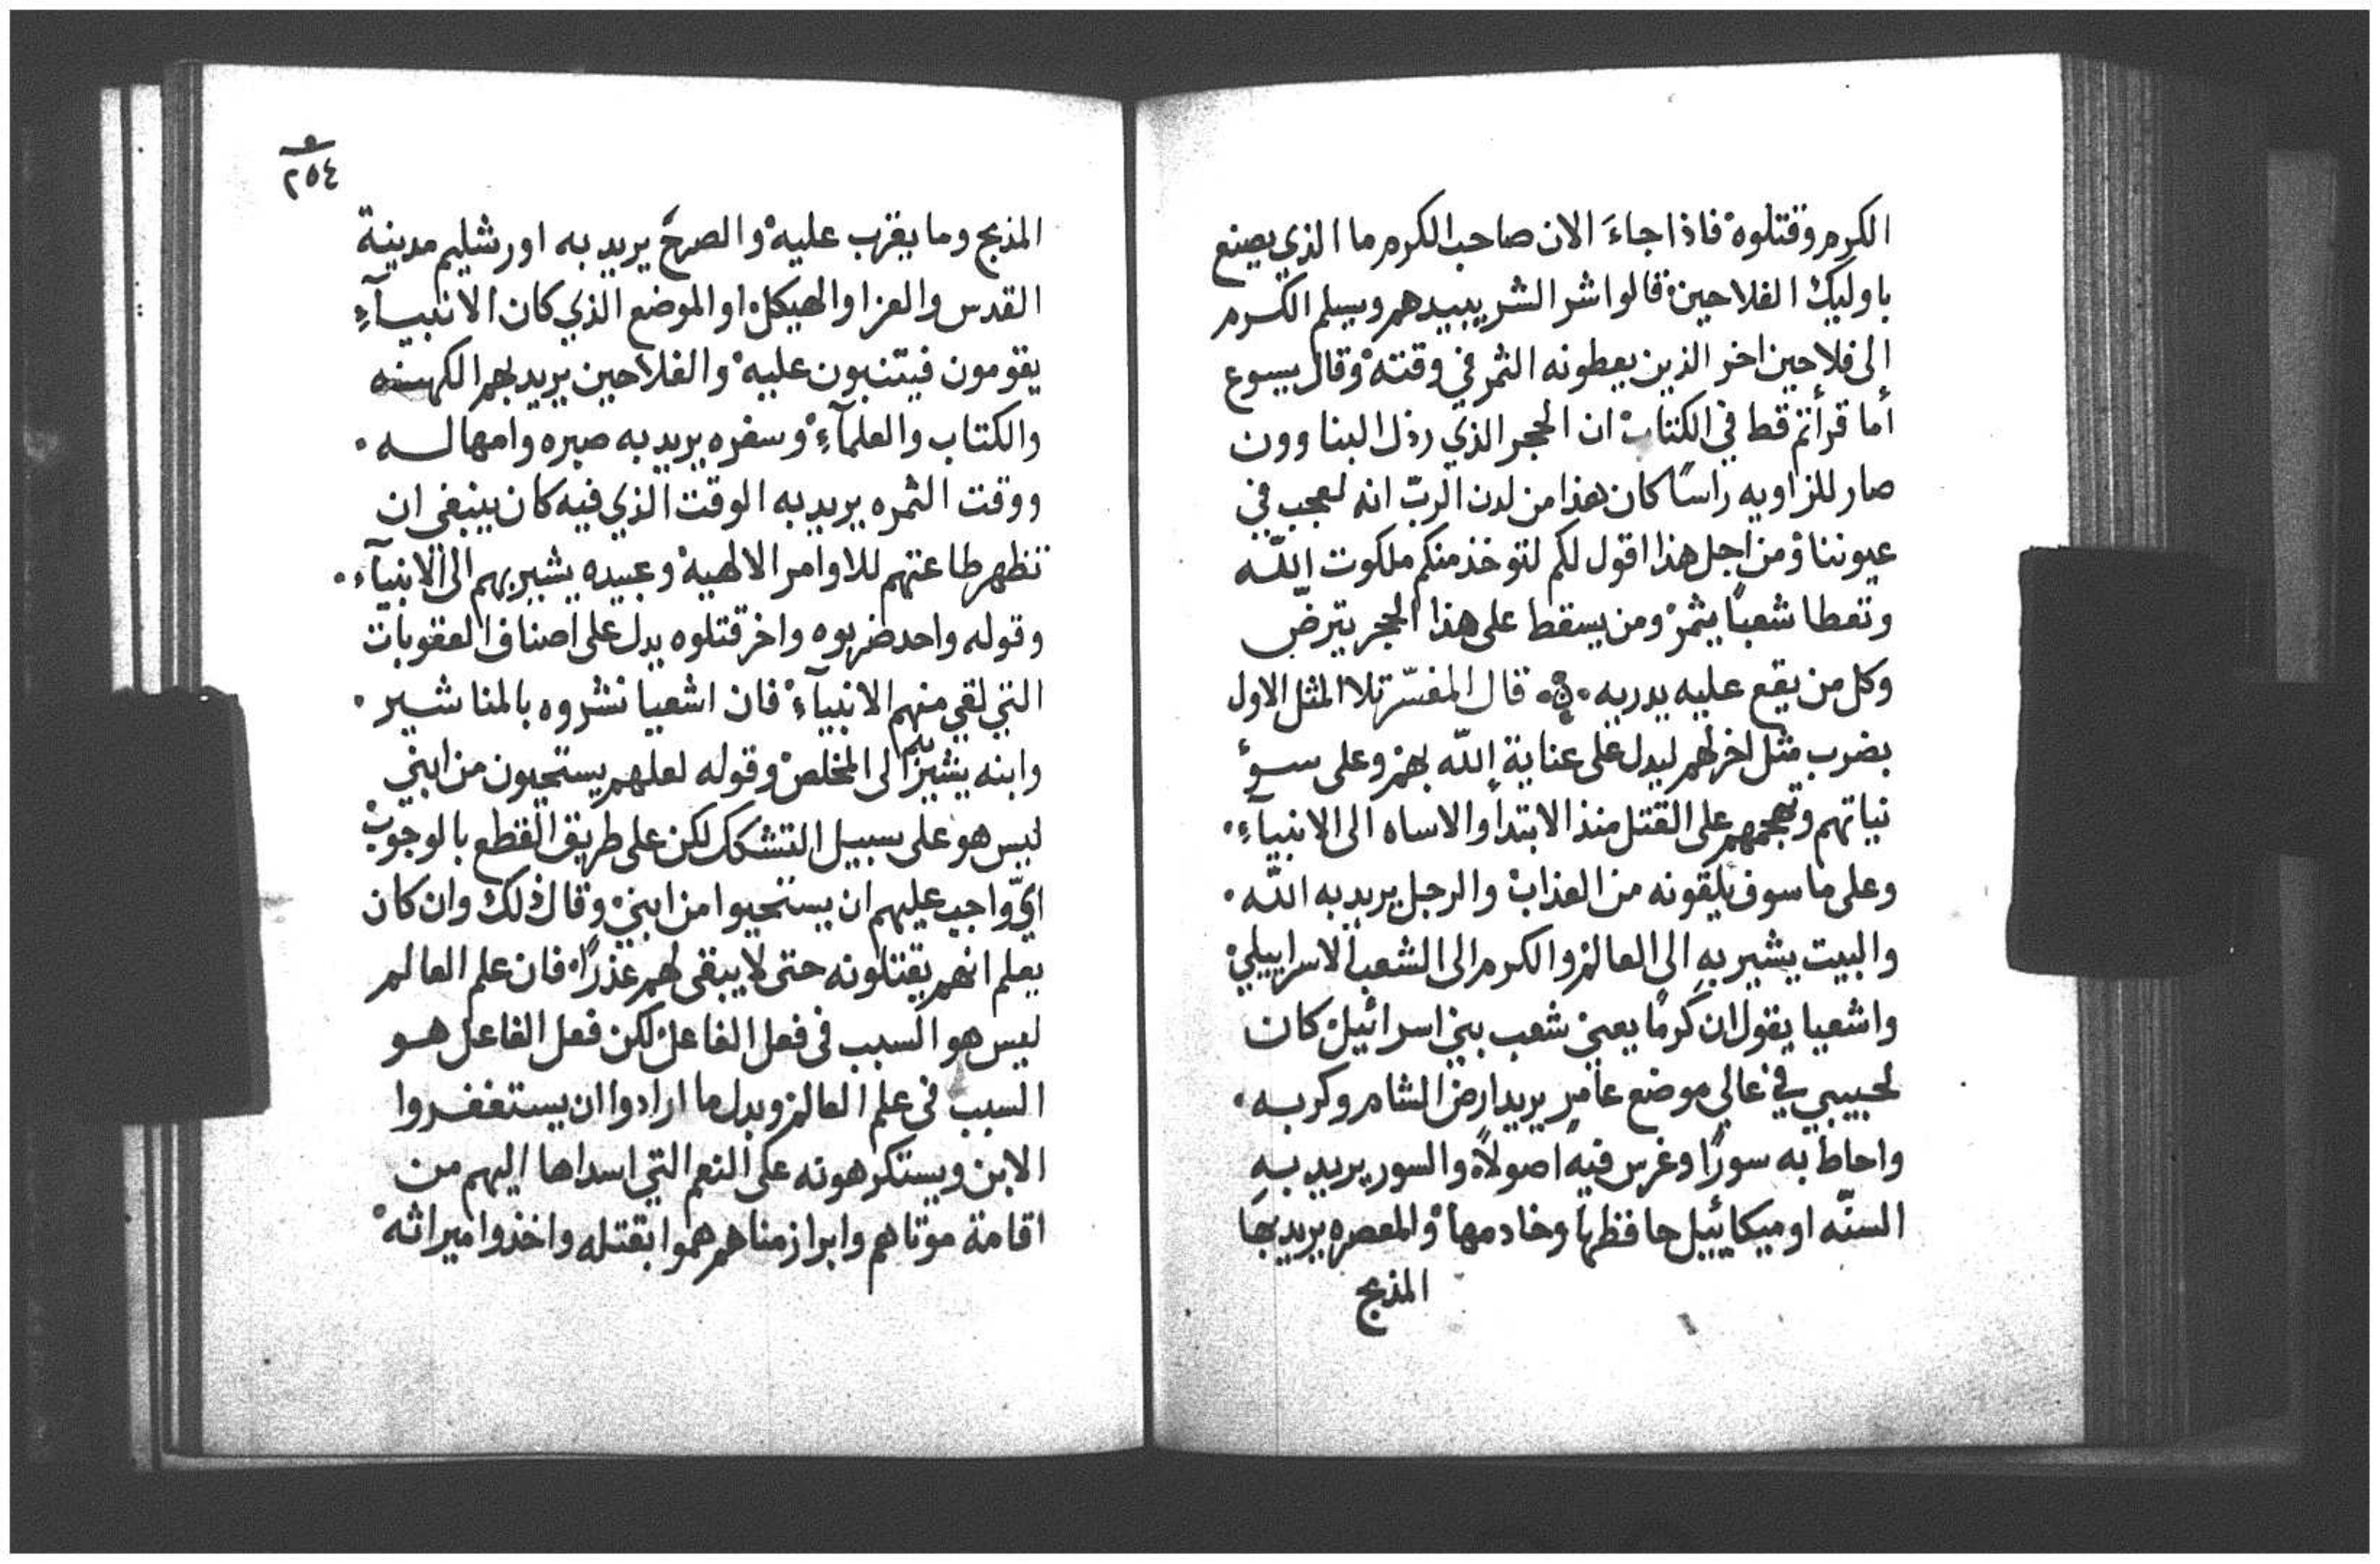 الكرم وقتلوه فاذا جاءَ الان صاحب الكرم ما الذي يصنع
باوليك الفلاحين قالوا شر الشر يبيدهم ويسلم الكرم
الى فلاحين اخر الذين يعطونه الثمر في وقته وقال يسوع
أما قرأتم قط في الكتاب ان الحجر الذي رذل البناوون
صار للزاويه راسًا كان هذا من لدن الربّ انه لعجب في
عيوننا ومن اجل هذا اقول لكم لتوخذ منكم ملكوت الله
وتعطا شعبًا يثمر ومن يسقط على هذا الحجر يترضّ
وكل من يقع عليه يدريه ۰ قال المفسّر تلا المثل الاول
بضرب مثل اخر لهم ليدل على عناية الله بهم وعلى سوٴ
نياتهم وتهجمهم على القتل منذ الابتدا والاساه الى الانبيآءِ.
وعلى ما سوف يلقونه من العذاب والرجل يريد به الله.
والبيت يشير به الى العالم والكرم الى الشعب الاسراييلي
واشعيا يقول ان كرمًا يعني شعب بني اسرائيل كان
لحبيبي في عالي موضع عامرٍ يريد ارض الشام وكربه.
واحاط به سورًا وغرس فيه اصولاً والسور يريد به
السنّه او ميكائييل حافظها وخادمها والمعصره يريد بها
المذبح
٢٥٤
المذبح وما يقرب عليه والصرح يريد به اورشليم مدينة
القدس والعزا والهيكل او الموضع الذي كان الانبيآءِ
يقومون فيتنبون عليه والفلاحين يريد بهم الكهنه
والكتاب والعلمآءِ وسفره يريد به صبره وامهاله.
ووقت الثمره يريد به الوقت الذي فيه كان ينبغي ان
تظهر طاعتهم للاوامر الالهيه وعبيده يشير بهم الى الانبيآء.
وقوله واحد ضربوه واخر قتلوه يدل على اصناف العقوبات
التي لقي منهم الانبيآءُ فان اشعيا نشروه بالمناشير.
وابنه يشير به الى المخلص وقوله لعلهم يستحيون من ابني
ليس هو على سبيل التشكك لكن على طريق القطع بالوجوب
ايّ واجب عليهم ان يستحيوا من ابني وقال ذلك وان كان
يعلم انهم يقتلونه حتى لا يبقى لهم عذرًا فان علم العالم
ليس هو السبب في فعل الفاعل لكن فعل الفاعل هو
السبب في علم العالم وبدل ما ارادوا ان يستغفروا
الابن ويستكرهونه على النعم التي اسداها اليهم من
اقامة موتاهم وابرا زمناهم هموا بقتله واخذوا ميراثه